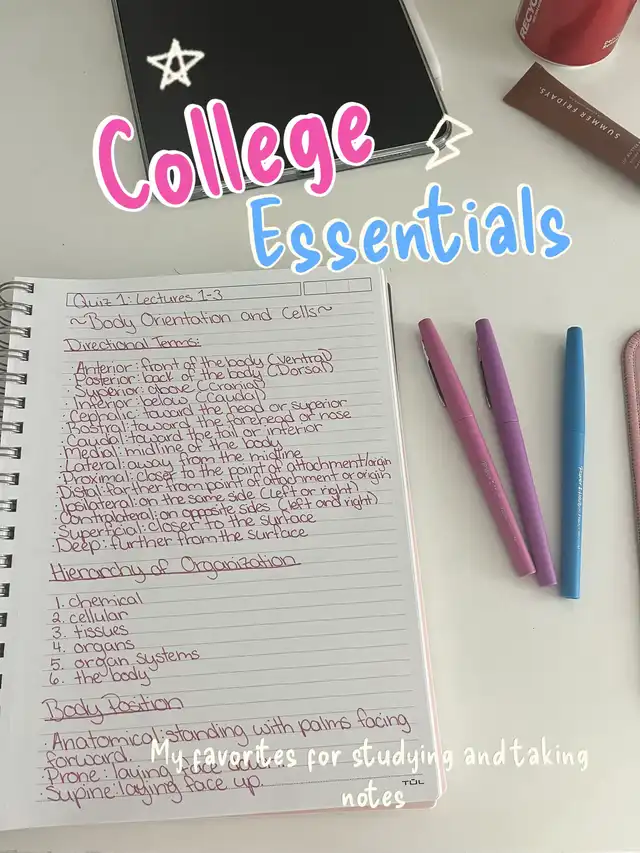 RECYC
SUMMER FRIDAYS.
College
Essentials
Quiz 1: Lectures 1-3
~Body Orientation and Cells~
Directional Terms:
·Anterior: front of the body (Ventral)
·Posterior: back of the body (Dorsal)
·Superior: above (Cranial)
·Inferior: below (Caudal)
·Cephalic: toward the head or superior
·Rostral: toward the forehead or nose
·Caudal: toward the tail or inferior
·Medial: midline of the body
·Lateral: away from the midline
·Proximal: closer to the point of attachment/origin
·Distal: farther from point of attachment or origin
·Ipsilateral: on the same side (left or right)
·Contralateral: on opposite sides (left and right)
·Superficial: closer to the surface
·Deep: further from the surface
Hierarchy of Organization
1. chemical
2. cellular
3. tissues
4. organs
5. organ systems
6. the body
Body Position
·Anatomical: standing with palms facing
forward.
·Prone: laying face
·Supine: laying face up.
My favorites for studying and taking
notes
TUL